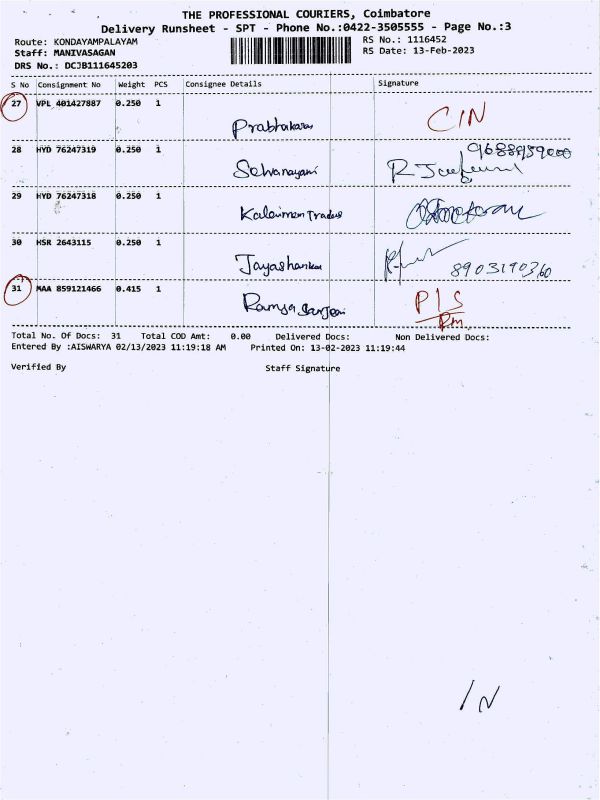 THE PROFESSIONAL COURIERS, Coimbatore
Delivery Runsheet - SPT - Phone No.:0422-3505555 - Page No.:3
Route: KONDAYAMPALAYAM RS No.: 1116452
Staff: MANIVASAGAN RS Date: 13-Feb-2023
DRS No.: DCJB111645203
S No Consignment No Weight PCS Consignee Details Signature
27 VPL 401427887 0.250 1
Prabhakaran CIN
28 HYD 76247319 0.250 1 9688959000
Selvanayani
29 HYD 76247318 0.250 1
Kalaiman Traders
30 HSR 2643115 0.250 1
Jayashankar 8903190360
31 MAA 859121466 0.415 1
Ramya P/S
Rm
Total No. Of Docs: 31 Total COD Amt: 0.00 Delivered Docs: Non Delivered Docs:
Entered By :AISWARYA 02/13/2023 11:19:18 AM Printed On: 13-02-2023 11:19:44
Verified By Staff Signature
IN